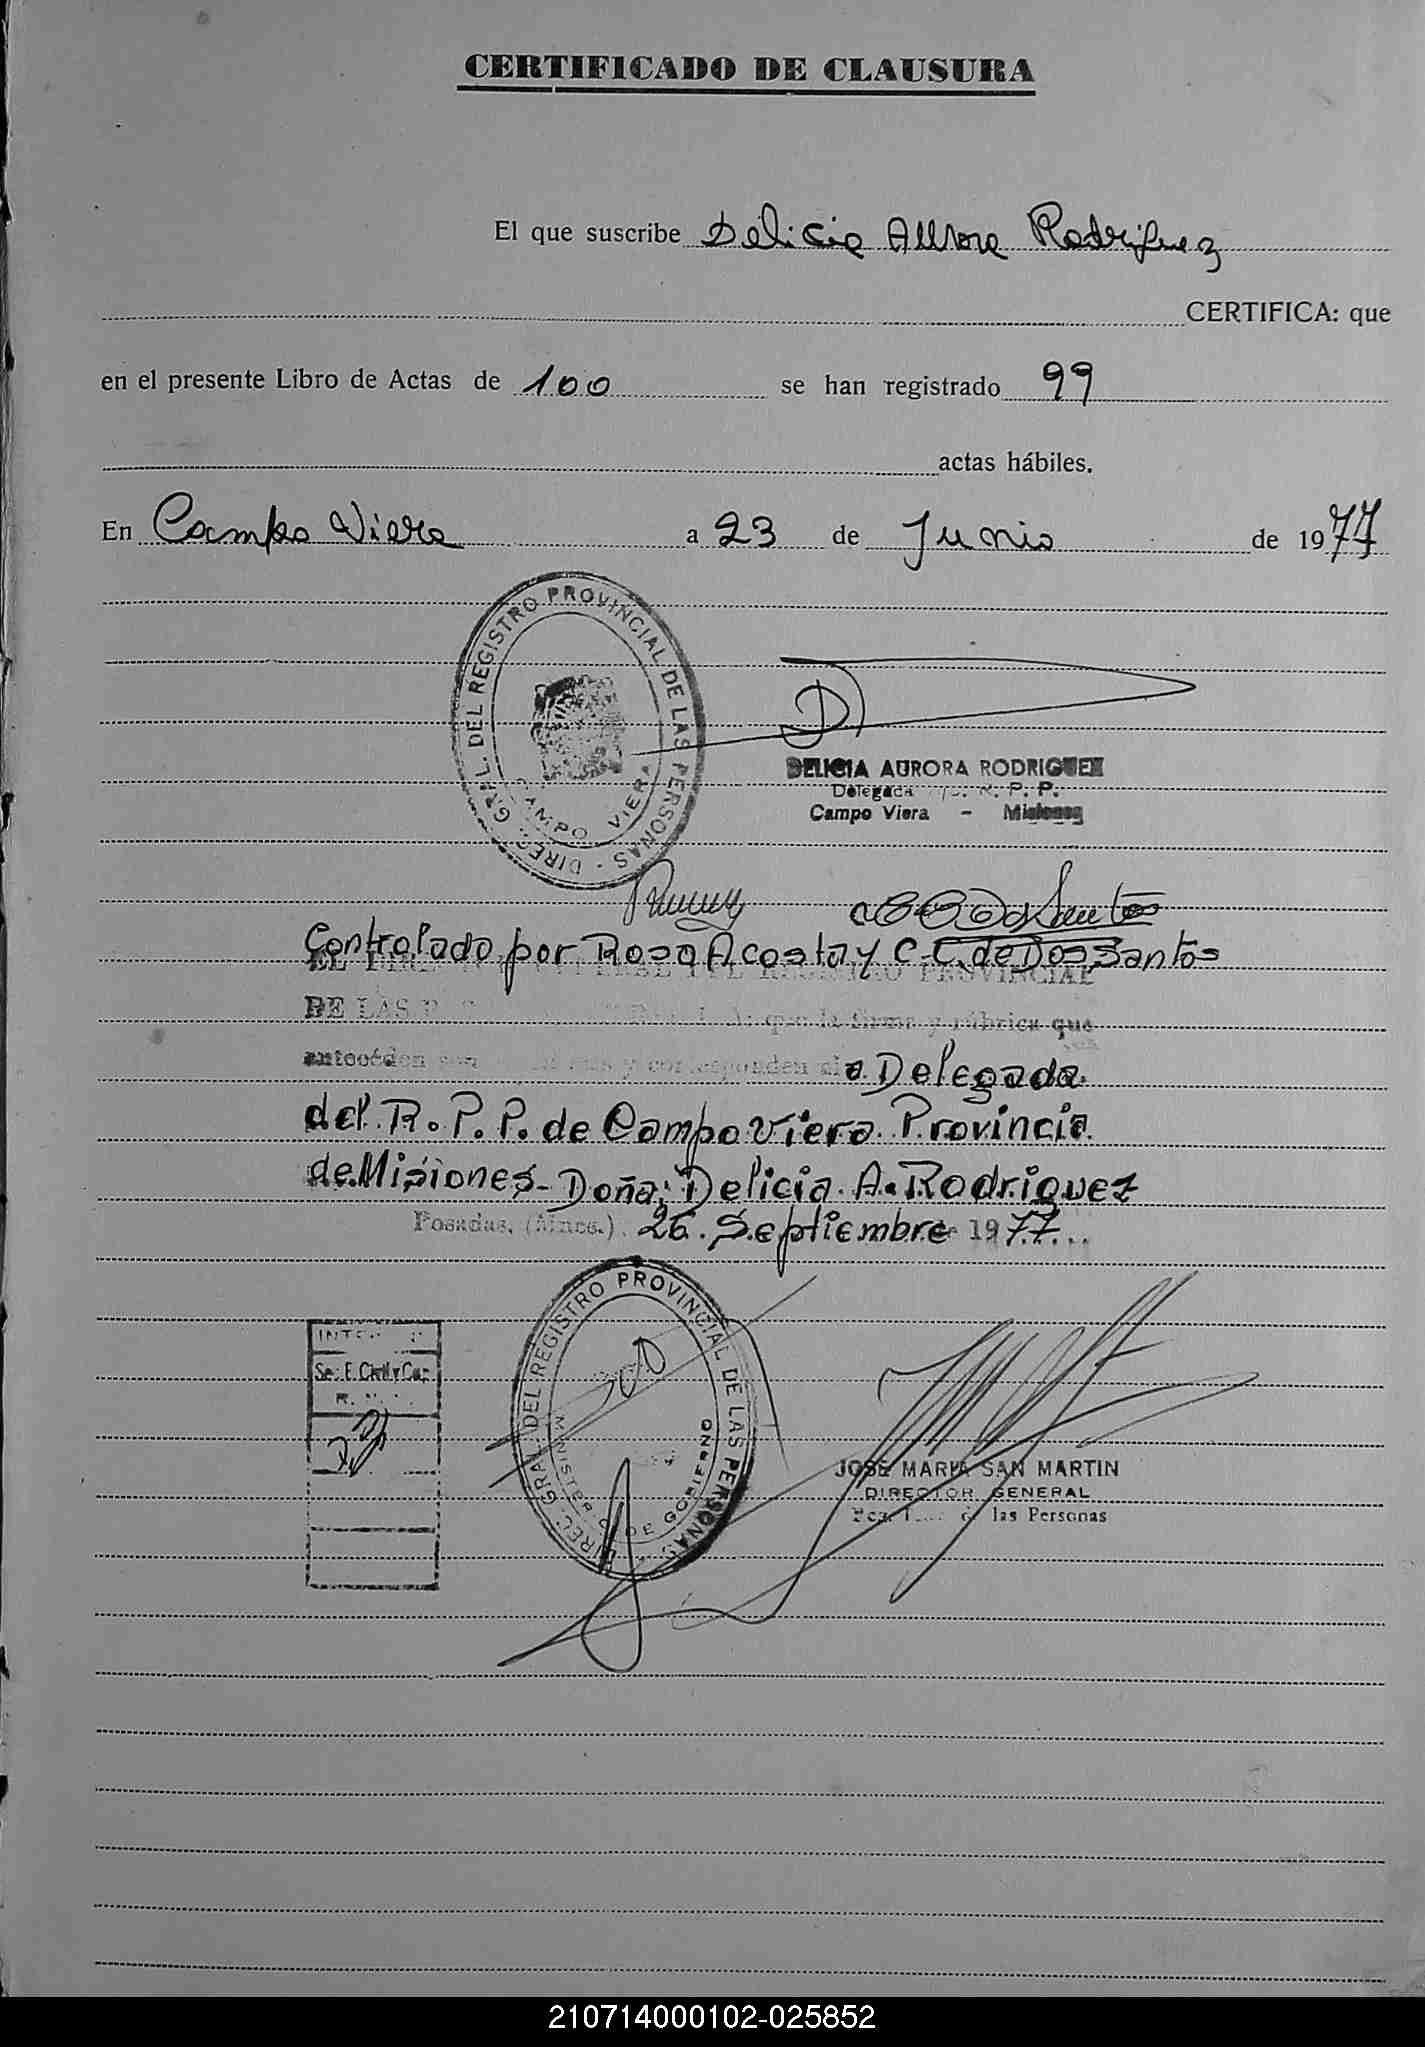 CERTIFICADO DE CLAUSURA
El que suscribe Delicia Aurora Rodriguez
CERTIFICA: que
en el presente Libro de Actas de 100 se han registrado 99
actas hábiles.
En Campo Viera a 23 de Junio de 1977
DIREC. GRAL. DEL REGISTRO PROVINCIAL DE LAS PERSONAS
CAMPO VIERA
DELICIA AURORA RODRIGUEZ
Delegada R. P. P.
Campo Viera - Misiones
Controlado por Rosa Acosta y C. C. de Dos Santos
EL REGISTRO PROVINCIAL
DE LAS que la firma y rúbrica que
anteceden son y corresponden a Delegada
del R. P. P. de Campo Viera Provincia
de Misiones - Doña: Delicia A. Rodriguez
Posadas, (Mnes.) 26 Septiembre de 1977
DIREC. GRAL. DEL REGISTRO PROVINCIAL DE LAS PERSONAS
MINISTERIO DE GOBIERNO
JOSE MARIA SAN MARTIN
DIRECTOR GENERAL
de las Personas
210714000102-025852